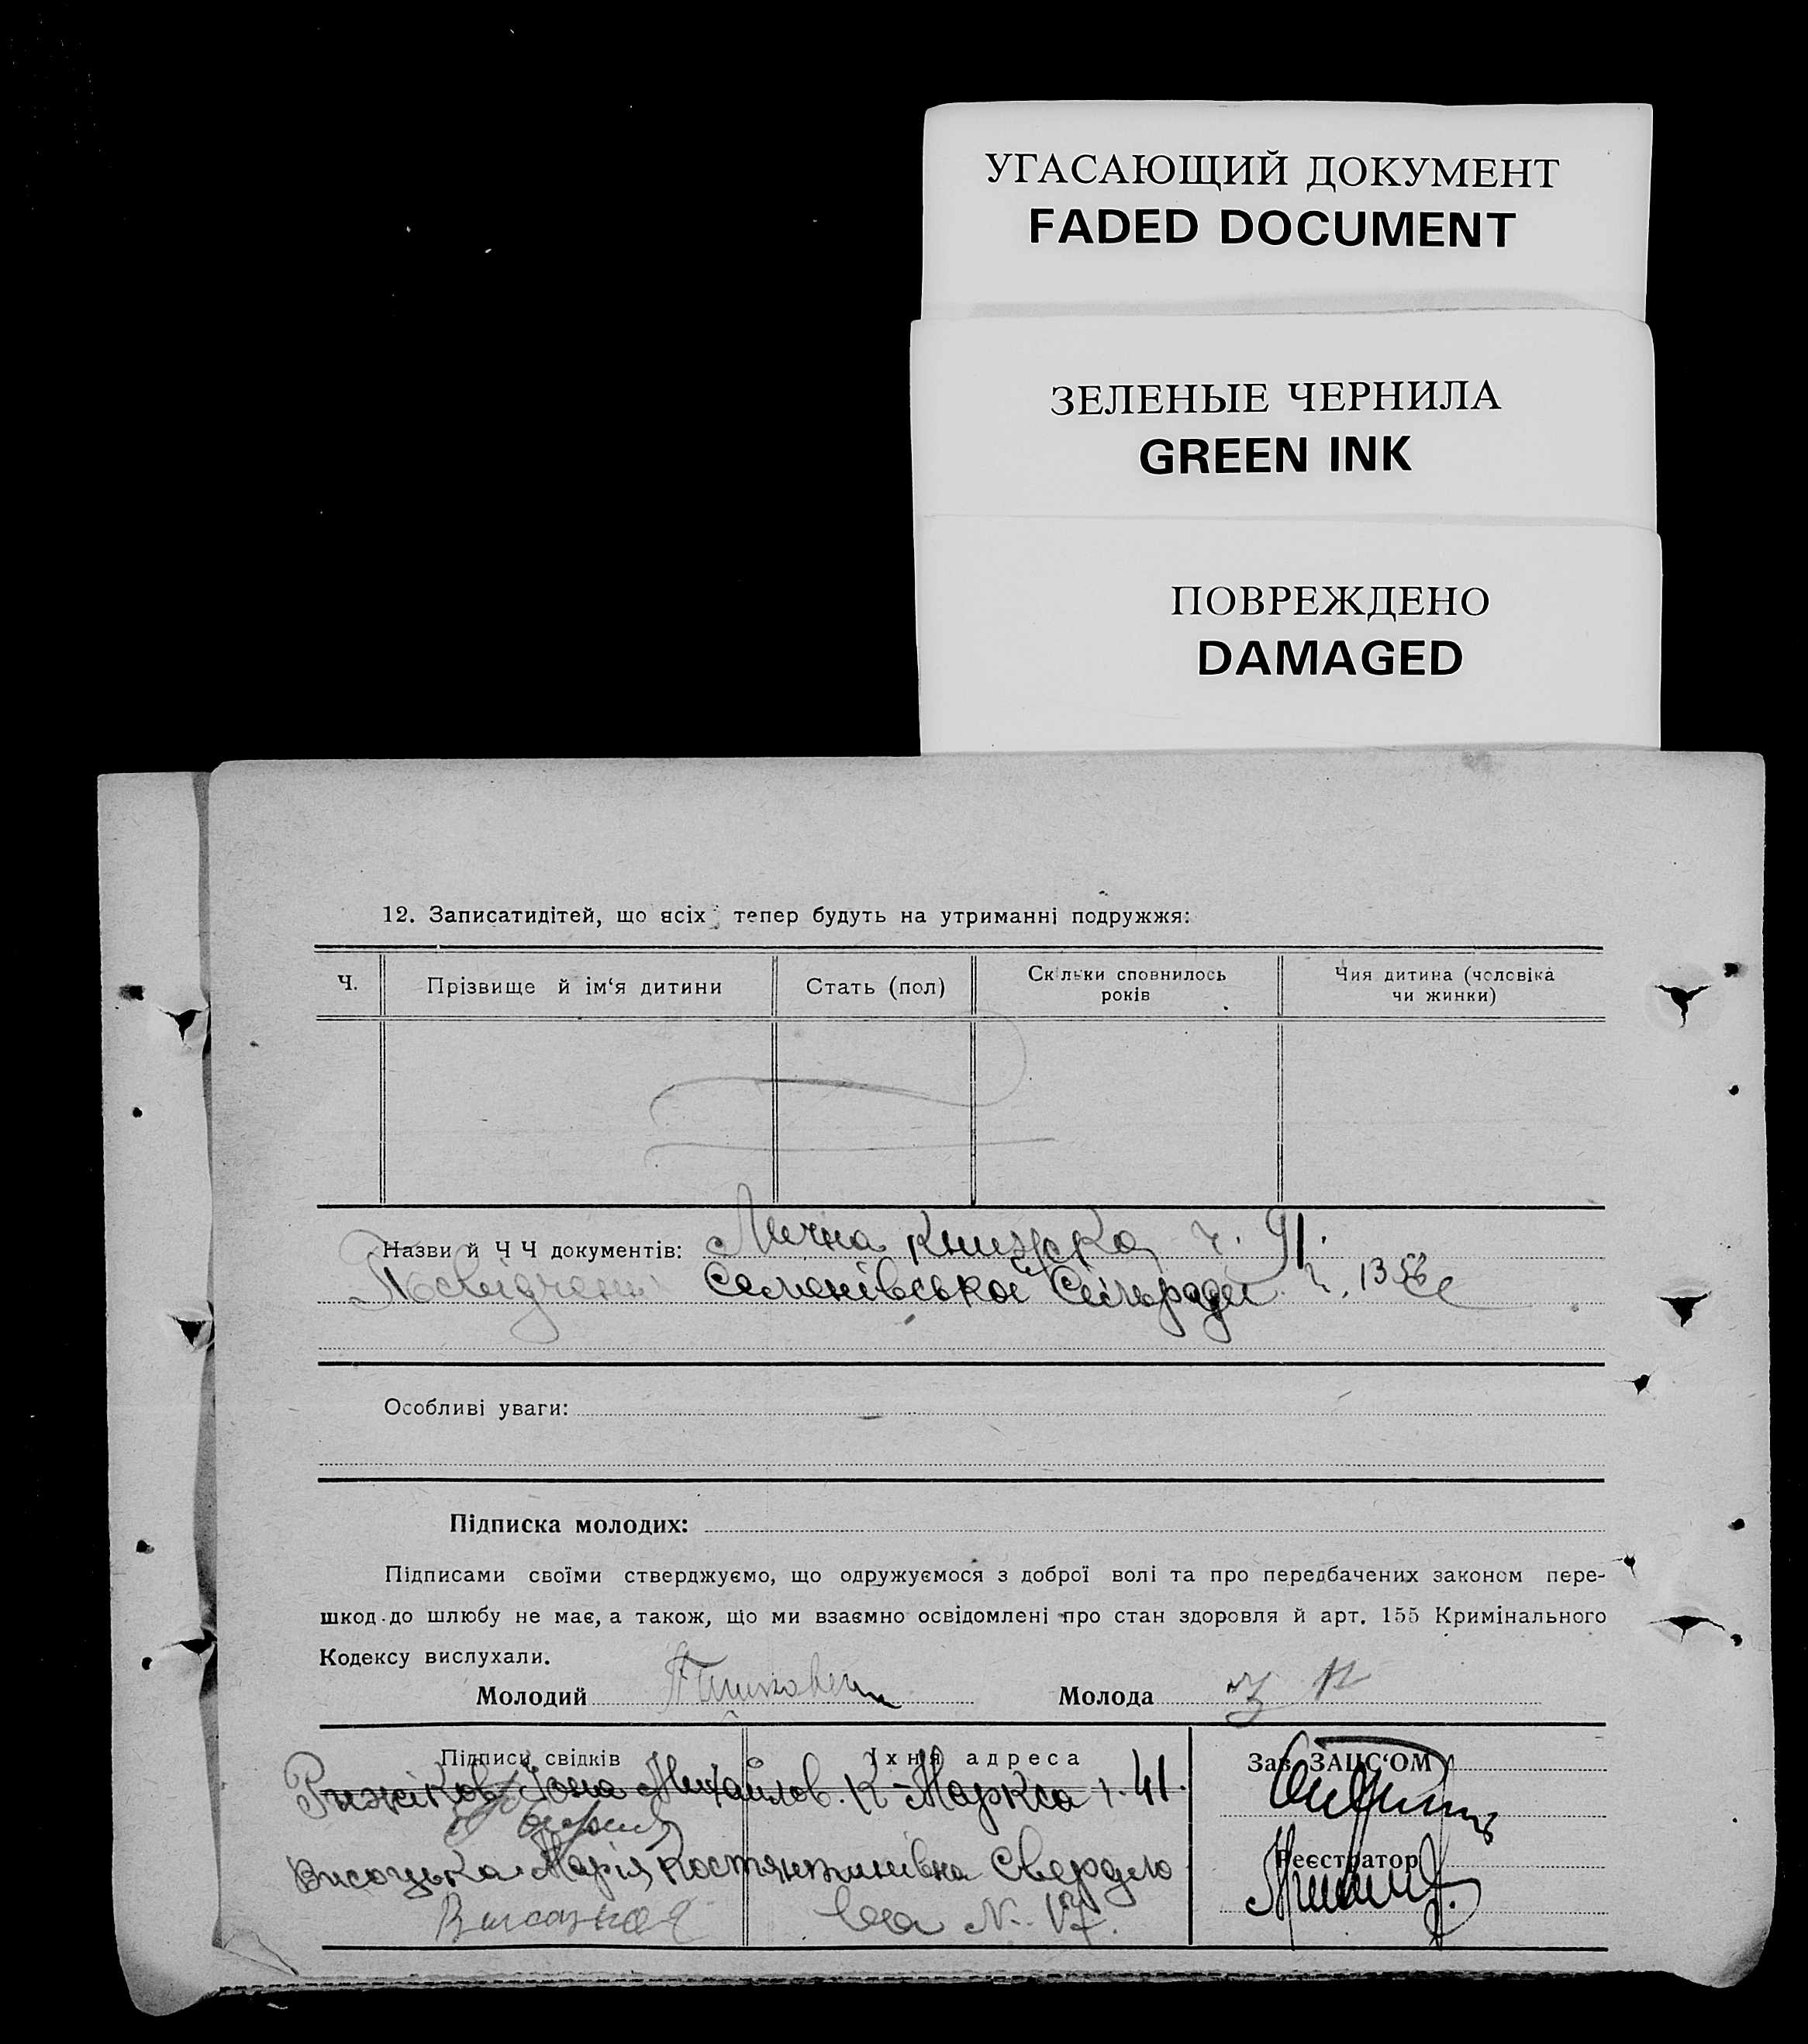 УГАСАЮЩИЙ ДОКУМЕНТ
FADED DOCUMENT
ЗЕЛЕНЫЕ ЧЕРНИЛА
GREEN INK
ПОВРЕЖДЕНО
DAMAGED
12. Записатидітей, що всіх тепер будуть на утриманні подружжя:
Ч.
Прізвище й ім‘я дитини
Стать (пол)
Скільки сповнилось
років
Чия дитина (чоловіка
чи жинки)
Назви й Ч Ч документів: Лична книжка ч. 91.
Посвідчення Семенівської Сільради ч. 1356
Особливі уваги:
Підписка молодих:
Підписами своїми стверджуємо, що одружуємося з доброї волі та про передбачених законом пере-
шкод до шлюбу не має, а також, що ми взаємно освідомлені про стан здоровля й арт. 155 Кримінального
Кодексу вислухали.
Молодий
Молода
Підписи свідків
Їхня адреса
Зав. ЗАЦС‘ОМ
Рижіков Йона Михайлов. К-Маркса ч. 41.
Висоцька Марія Костянтинівна Свердло
Реєстратор
Висоцкая
ва N. 17.